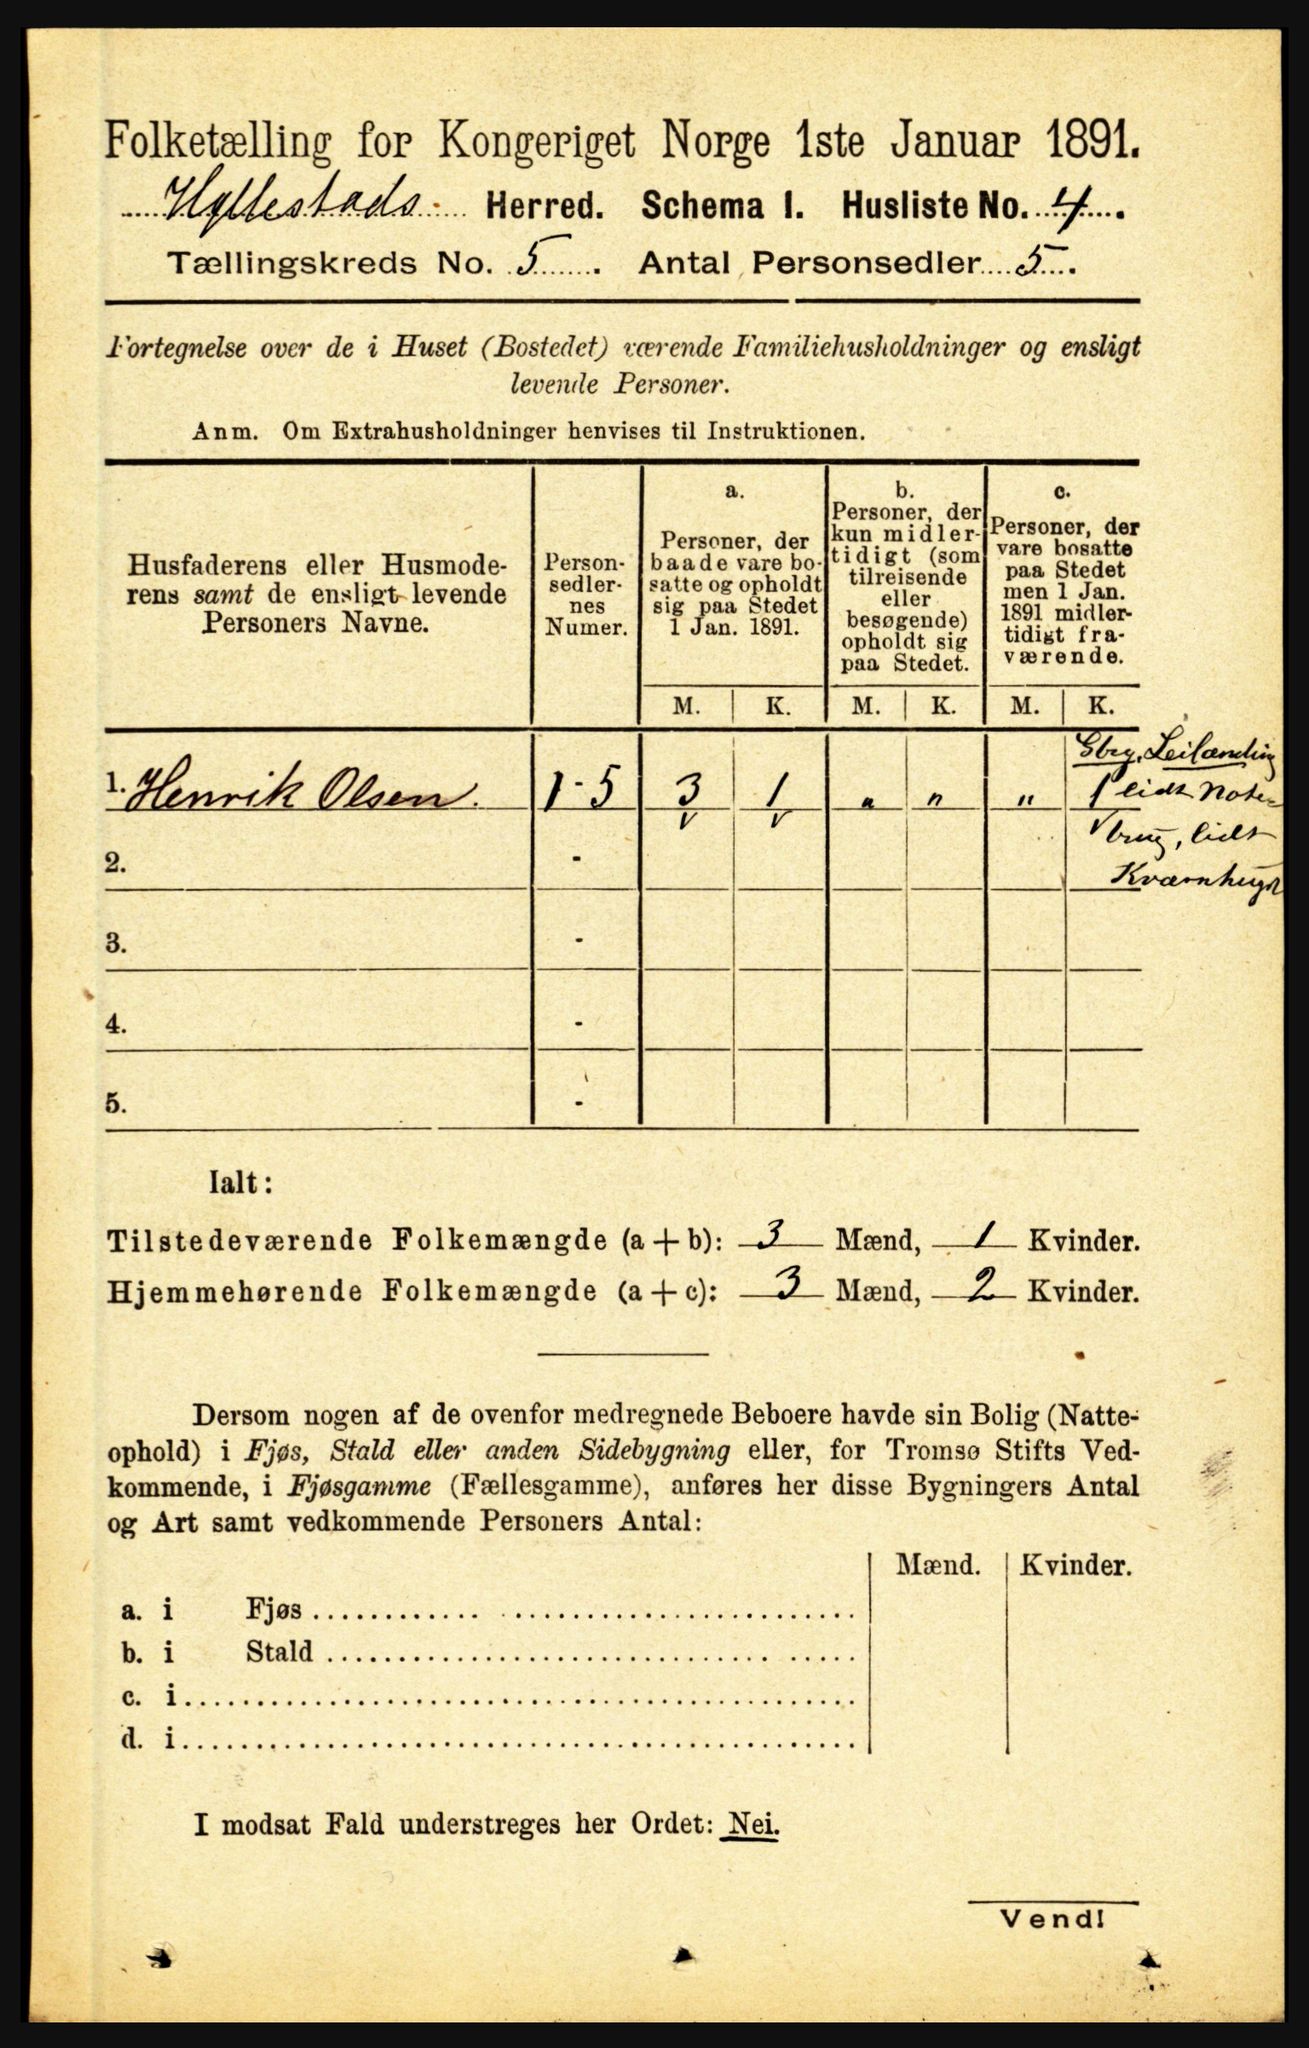 Folketælling for Kongeriget Norge 1ste Januar 1891.
Hyllestads Herred. Schema I. Husliste No. 4.
Tællingskreds No. 5. Antal Personsedler 5.
Fortegnelse over de i Huset (Bostedet) værende Familiehusholdninger og ensligt
levende Personer.
Anm. Om Extrahusholdninger henvises til Instruktionen.
Husfaderens eller Husmode-
rens samt de ensligt levende
Personers Navne.
Person-
sedler-
nes
Numer.
a.
Personer, der
baade vare bo-
satte og opholdt
sig paa Stedet
1 Jan. 1891.
b.
Personer, der
kun midler-
tidigt (som
tilreisende
eller
besøgende)
opholdt sig
paa Stedet.
c.
Personer, der
vare bosatte
paa Stedet
men 1 Jan.
1891 midler-
tidigt fra-
værende.
M. K. M. K. M. K.
Gbrg, Leilænding
1. Henrik Olsen. 1 - 5 3 1 " " " 1 lidt Note-
v v v brug, lidt
2. -
Kværnhugst
3. -
4. -
5. -
Ialt:
Tilstedeværende Folkemængde (a + b): 3 Mænd, 1 Kvinder.
Hjemmehørende Folkemængde (a + c): 3 Mænd, 2 Kvinder.
Dersom nogen af de ovenfor medregnede Beboere havde sin Bolig (Natte-
ophold) i Fjøs, Stald eller anden Sidebygning eller, for Tromsø Stifts Ved-
kommende, i Fjøsgamme (Fællesgamme), anføres her disse Bygningers Antal
og Art samt vedkommende Personers Antal:
Mænd. Kvinder.
a. i Fjøs
b. i Stald
c. i
d. i
I modsat Fald understreges her Ordet: Nei.
Vend!